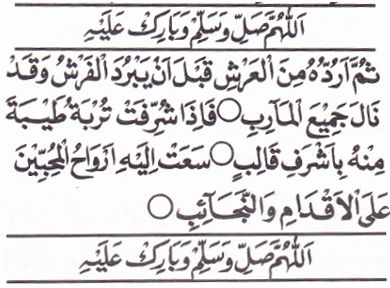 اَللّٰهُمَّ صَلِّ وَسَلِّمْ وَبَارِكْ عَلَيْهِ
ثُمَّ اَرُدُّهُ مِنَ الْعَرْشِ قَبْلَ اَنْ يَبْرُدَ الْفَرْشُ وَقَدْ
نَالَ جَمِيْعَ الْمَاٰرِبِ ○ فَاِذَا شُرِّفَتْ تُرْبَةُ طَيْبَةَ
مِنْهُ بِاَشْرَفِ قَالِبٍ ○ سَعَتْ اِلَيْهِ اَرْوَاحُ الْمُحِبِّيْنَ
عَلَى الْاَقْدَامِ وَالنَّجَآئِبِ ○
اَللّٰهُمَّ صَلِّ وَسَلِّمْ وَبَارِكْ عَلَيْهِ